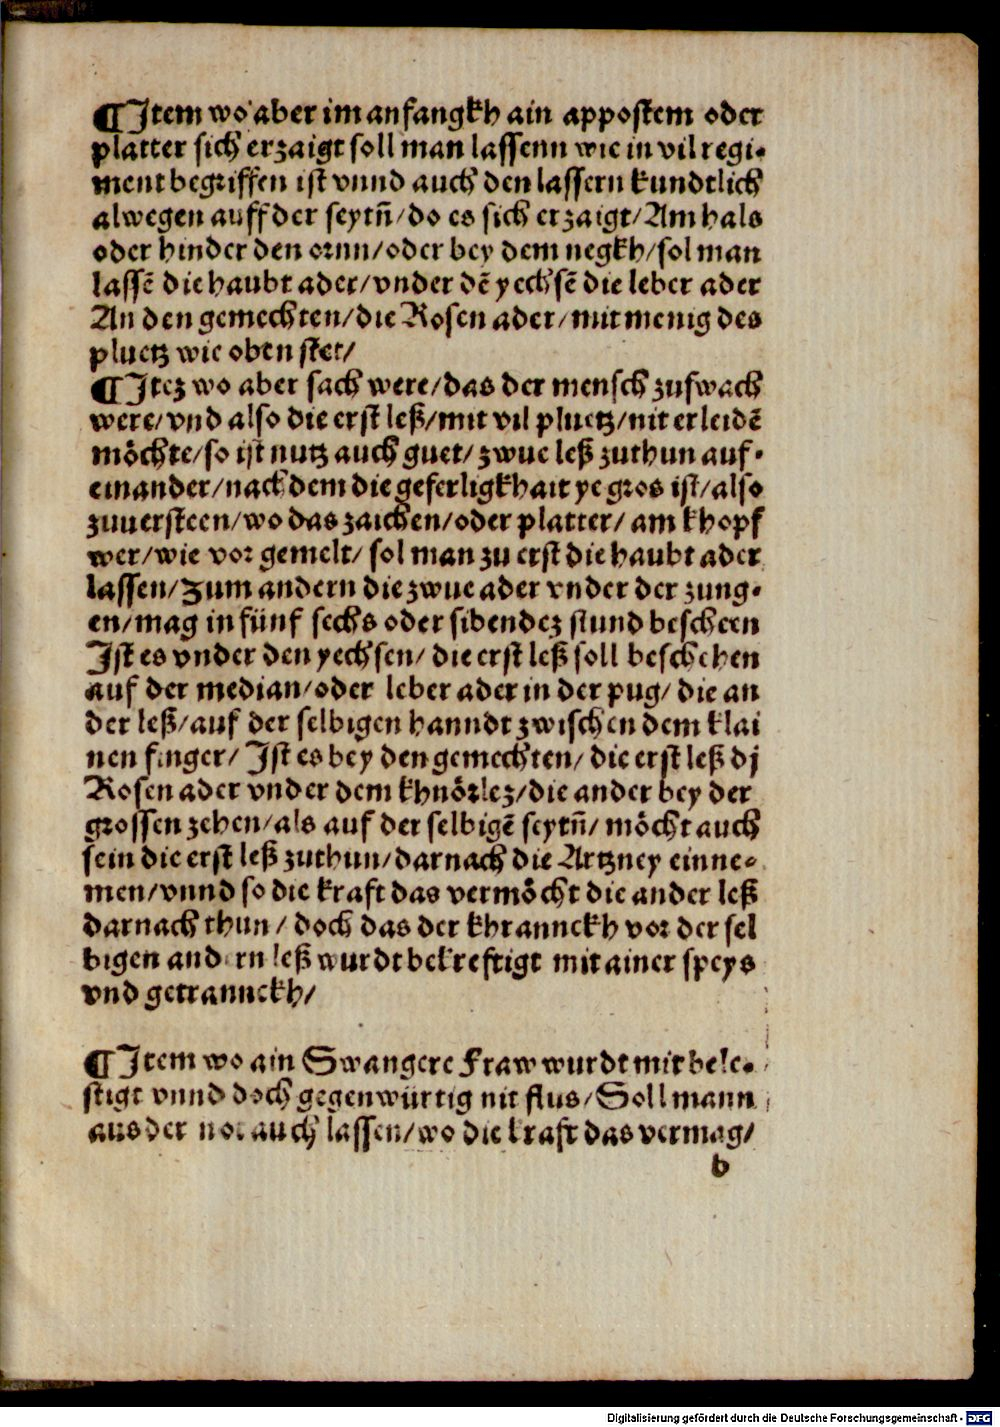 ¶ Item wo aber im anfangkh ain appostem oder
platter sich erzaigt soll man lassenn wie in vil regi-
ment begriffen ist vnnd auch den lassern kundtlich
alwegen auff der seytn̄/do es sich erzaigt/Am hals
oder hinder den ornn/oder bey dem negkh/sol man
lassē die haubt ader/vnder dē yechsē die leber ader
An den gemechten/die Rosen ader/mit menig des
pluetz wie oben stet/
¶ Itez wo aber sach were/das der mensch zuswach
were/vnd also die erst leß/mit vil pluetz/nit erleidē
möchte/so ist nutz auch guet/zwue leß zuthun auf-
einander/nach dem die geferligkhait ye gros ist/also
zuuersteen/wo das zaichen/oder platter/am khopf
wer/wie vor gemelt/sol man zu erst die haubt ader
lassen/Zum andern die zwue ader vnder der zung-
en/mag in fünf sechs oder sibendez stund bescheen
Ist es vnder den yechsen/die erst leß soll beschehen
auf der median/oder leber ader in der pug/die an
der leß/auf der selbigen hanndt zwischen dem klai
nen finger/Ist es bey den gemechten/die erst leß dj
Rosen ader vnder dem khnörlez/die ander bey der
grossen zehen/als auf der selbigē seytn̄/möcht auch
sein die erst leß zuthun/darnach die Artzney einne-
men/vnnd so die kraft das vermöcht die ander leß
darnach thun/doch das der khrannckh vor der sel
bigen andern leß wurdt bekreftigt mit ainer speys
vnd getrannckh/
¶ Item wo ain Swangere Fraw wurdt mit bele-
stigt vnnd doch gegenwürtig nit flus/Soll mann
aus der not auch lassen/wo die kraft das vermag/
b
Digitalisierung gefördert durch die Deutsche Forschungsgemeinschaft - DFG